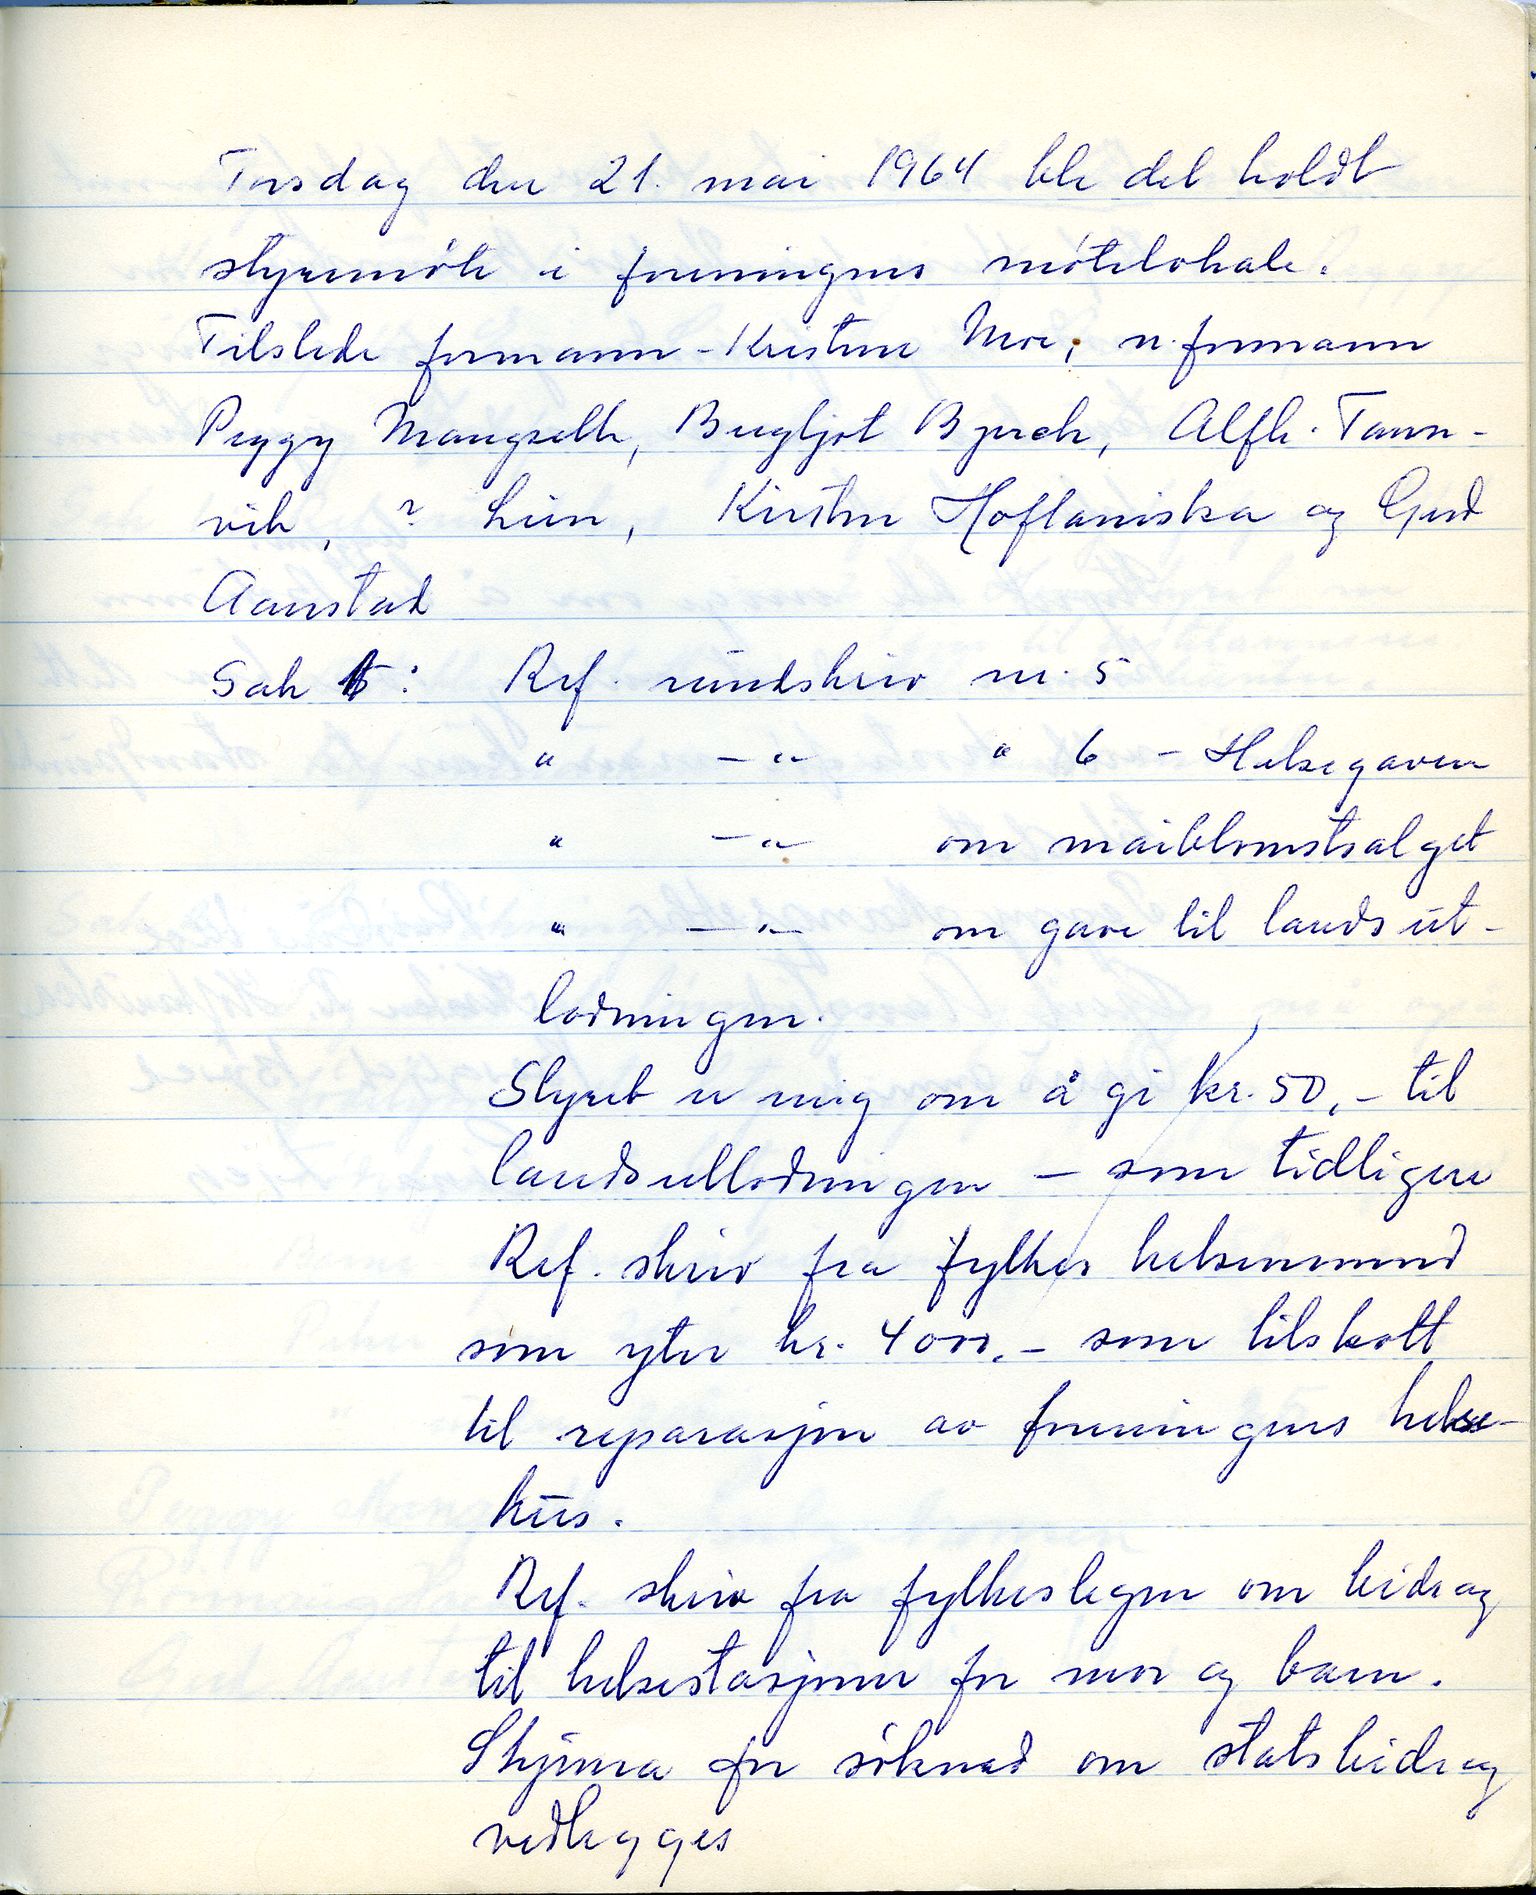 Torsdag den 21. mai 1964 ble det holdt
styremøte i foreningens møtelokale.
Tilstede formann - Kristine Moe, n.formann
Peggy Mangseth, Bergljot Bjerch, Alfh. Tann-
vik, ? Lien, Kirsten Hoflaniska og Gerd
Aanstad
Sak 1: Ref. rundskriv nr. 5
" - " - " 6 - Helsegaven
" - " - om maiblomstsalget
" - " - om gave til landsut-
lodningen.
Styret er enig om å gi kr. 50,- til
landsutlodningen - som tidligere
Ref. skriv fra fylkes helsenemnd
som yter kr. 4000,- som tilskott
til reparasjon av foreningens helse-
hus.
Ref. skriv fra fylkeslegen om bidrag
til helsestasjoner for mor og barn.
Skjema for søknad om statsbidrag
vedlegges